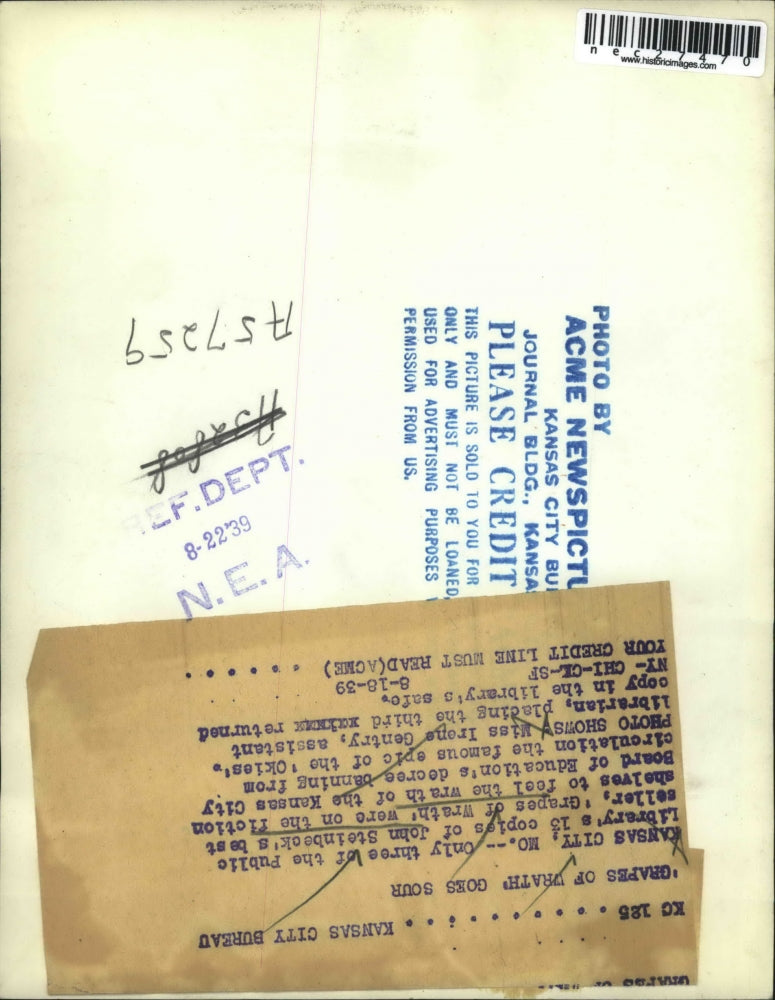 nec27470
www.historicimages.com
A57259
REF. DEPT.
8-22'39
N.E.A.
PHOTO BY
ACME NEWSPICTU
KANSAS CITY BU
JOURNAL BLDG., KANSA
PLEASE CREDIT
THIS PICTURE IS SOLD TO YOU FOR
ONLY AND MUST NOT BE LOANED,
USED FOR ADVERTISING PURPOSES
PERMISSION FROM US.
KG 125 . . . . . . . . . . . KANSAS CITY BUREAU
'GRAPES OF WRATH' GOES SOUR
KANSAS CITY, MO.-- Only three of the Public
Library's 13 copies of John Steinbeck's best
seller, 'Grapes of Wrath' were on the fiction
shelves to feel the wrath of the Kansas City
Board of Education's decree banning from
circulation the famous epic of the 'Okies'.
PHOTO SHOWS Miss Irene Gentry, assistant
librarian, placing the third returned
copy in the library's safe.
NY- CHI-CL-SF 8-18-39
YOUR CREDIT LINE MUST READ(ACME) . . . . . .